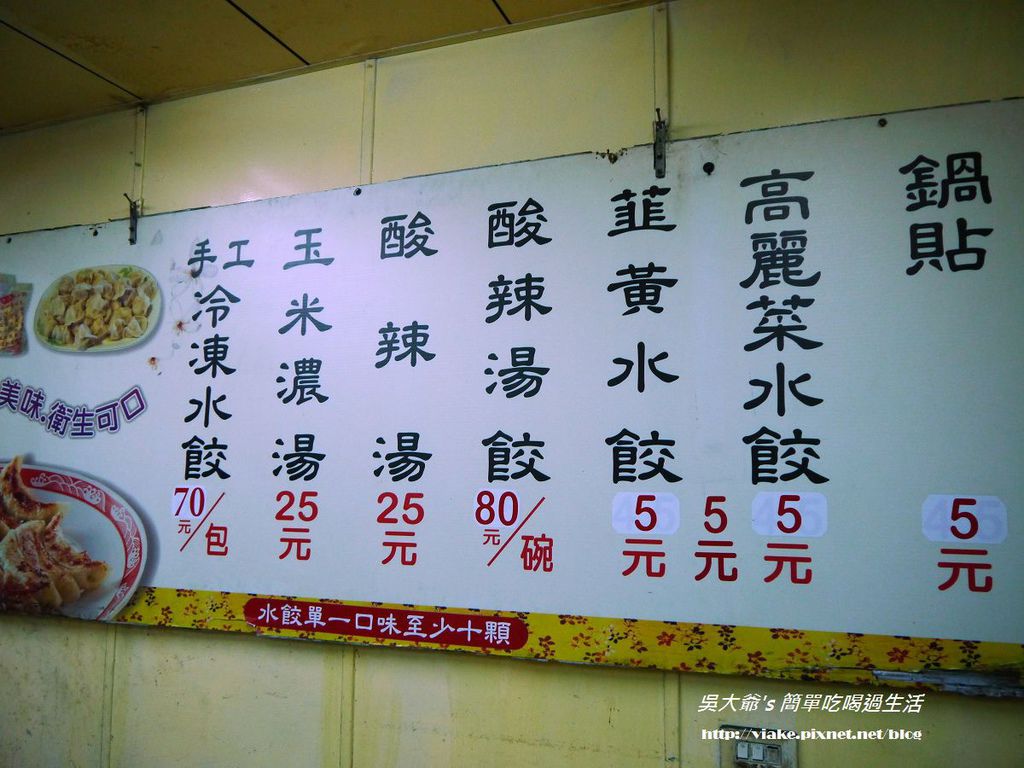 鍋貼
5元
高麗菜水餃
5元
5元
韮黃水餃
5元
酸辣湯餃
80元/碗
酸辣湯
25元
玉米濃湯
25元
手工冷凍水餃
70元/包
美味.衛生可口
水餃單一口味至少十顆
吳大爺's 簡單吃喝過生活
http://viake.pixnet.net/blog